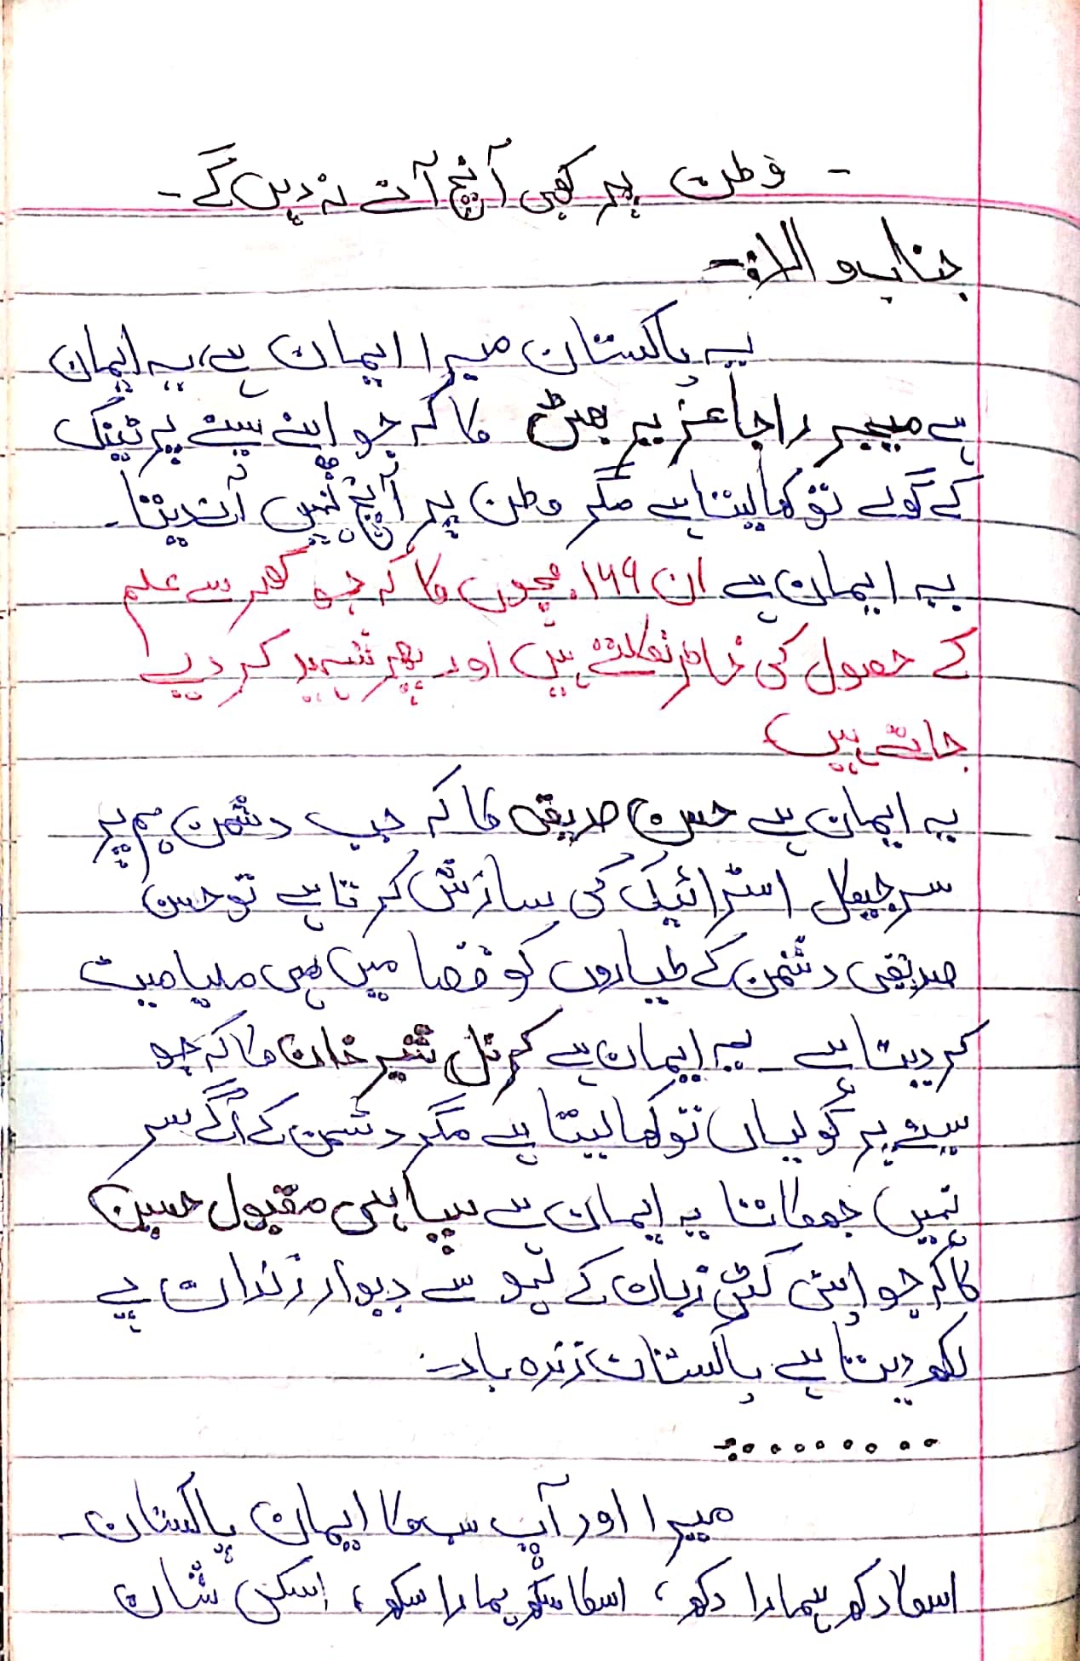 - وطن پر کبھی آنچ آنے نہ دیں گے -
جناب والا:-
یہ پاکستان میرا ایمان ہے، یہ ایمان
ہے میجر راجا عزیز بھٹی کا کہ جو اپنے سینے پر ٹینک
کے گولے تو کھا لیتا ہے مگر وطن پر آنچ نہیں آنے دیتا۔
یہ ایمان ہے ان ۱۴۹ بچوں کا کہ جو گھر سے علم
کے حصول کی خاطر نکلتے ہیں اور پھر شہید کر دیے
جاتے ہیں
یہ ایمان ہے حسن صدیقی کا کہ جب دشمن ہم پر
سرجیکل اسٹرائیک کی سازش کرتا ہے تو حسن
صدیقی دشمن کے طیاروں کو فضا میں ہی ملیامیٹ
کر دیتا ہے ۔ یہ ایمان ہے کرنل شیر خان کا کہ جو
سینے پر گولیاں تو کھا لیتا ہے مگر دشمن کے آگے سر
نہیں جھکاتا یہ ایمان ہے سپاہی مقبول حسین
کا کہ جو اپنی کٹی زبان کے لہو سے دیوار زنداں پے
لکھ دیتا ہے پاکستان زندہ باد:-
میرا اور آپ سب کا ایمان پاکستان۔
اسکا دکھ ہمارا دکھ، اسکا سکھ ہمارا سکھ، اسکی شان